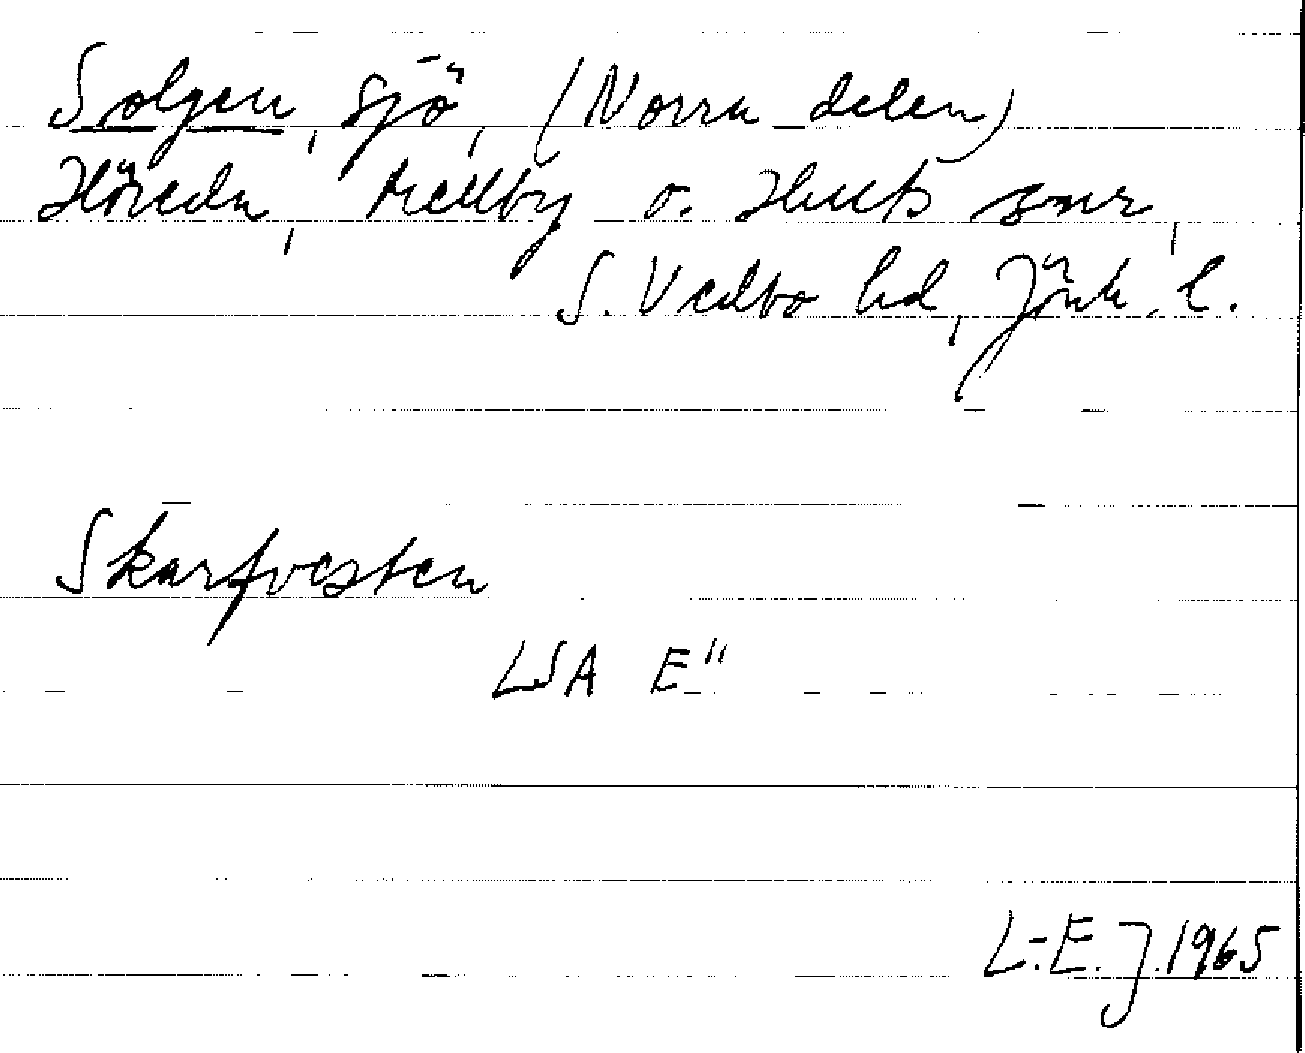 Solgen, sjö, (Norra delen)
Höreda, Mellby o. Hults snr,
S. Vedbo hd, Jönk. l.
Skarfvesten
LSA E"
L-E. J. 1965